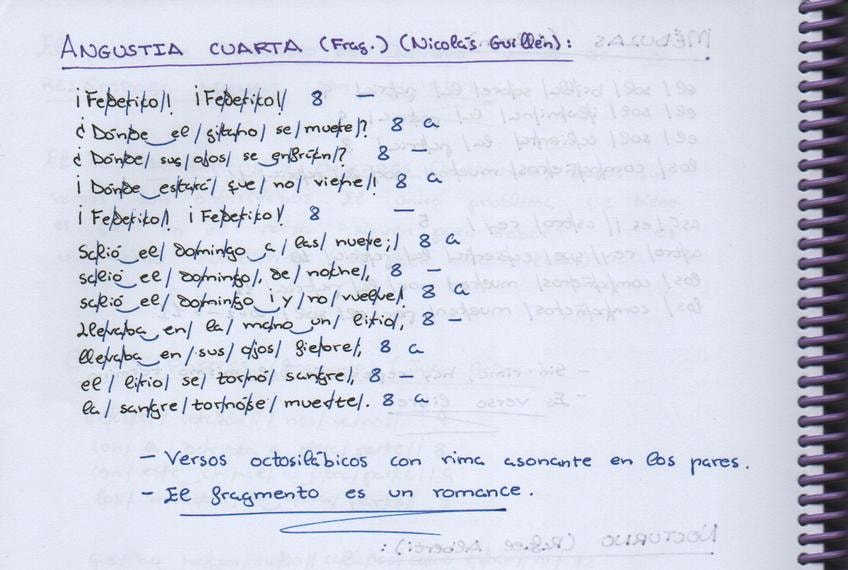 ANGUSTIA CUARTA (Frag.) (Nicolás Guillén):
¡Fe/de/ri/co/! ¡Fe/de/ri/co/! 8 —
¿Dón/de el/ gi/ta/no/ se/ mue/re/? 8 a
¿Dón/de/ sus/ o/jos/ se en/frí/an/? 8 —
¡Dón/de es/ta/rá/ que/ no/ vie/ne/! 8 a
¡Fe/de/ri/co/! ¡Fe/de/ri/co/! 8 —
Sa/lió el/ do/min/go a/ las/ nue/ve;/ 8 a
sa/lió el/ do/min/go/, de/ no/che/, 8 —
sa/lió el/ do/min/go ¡y/ no/ vuel/ve/! 8 a
Lle/va/ba en/ la/ ma/no un/ li/rio/, 8 —
lle/va/ba en/ sus/ o/jos/ fie/bre/, 8 a
el/ li/rio/ se/ tor/nó/ san/gre/, 8 —
la/ san/gre/ tor/nó/se/ muer/te/. 8 a
— Versos octosilábicos con rima asonante en los pares.
— El fragmento es un romance.